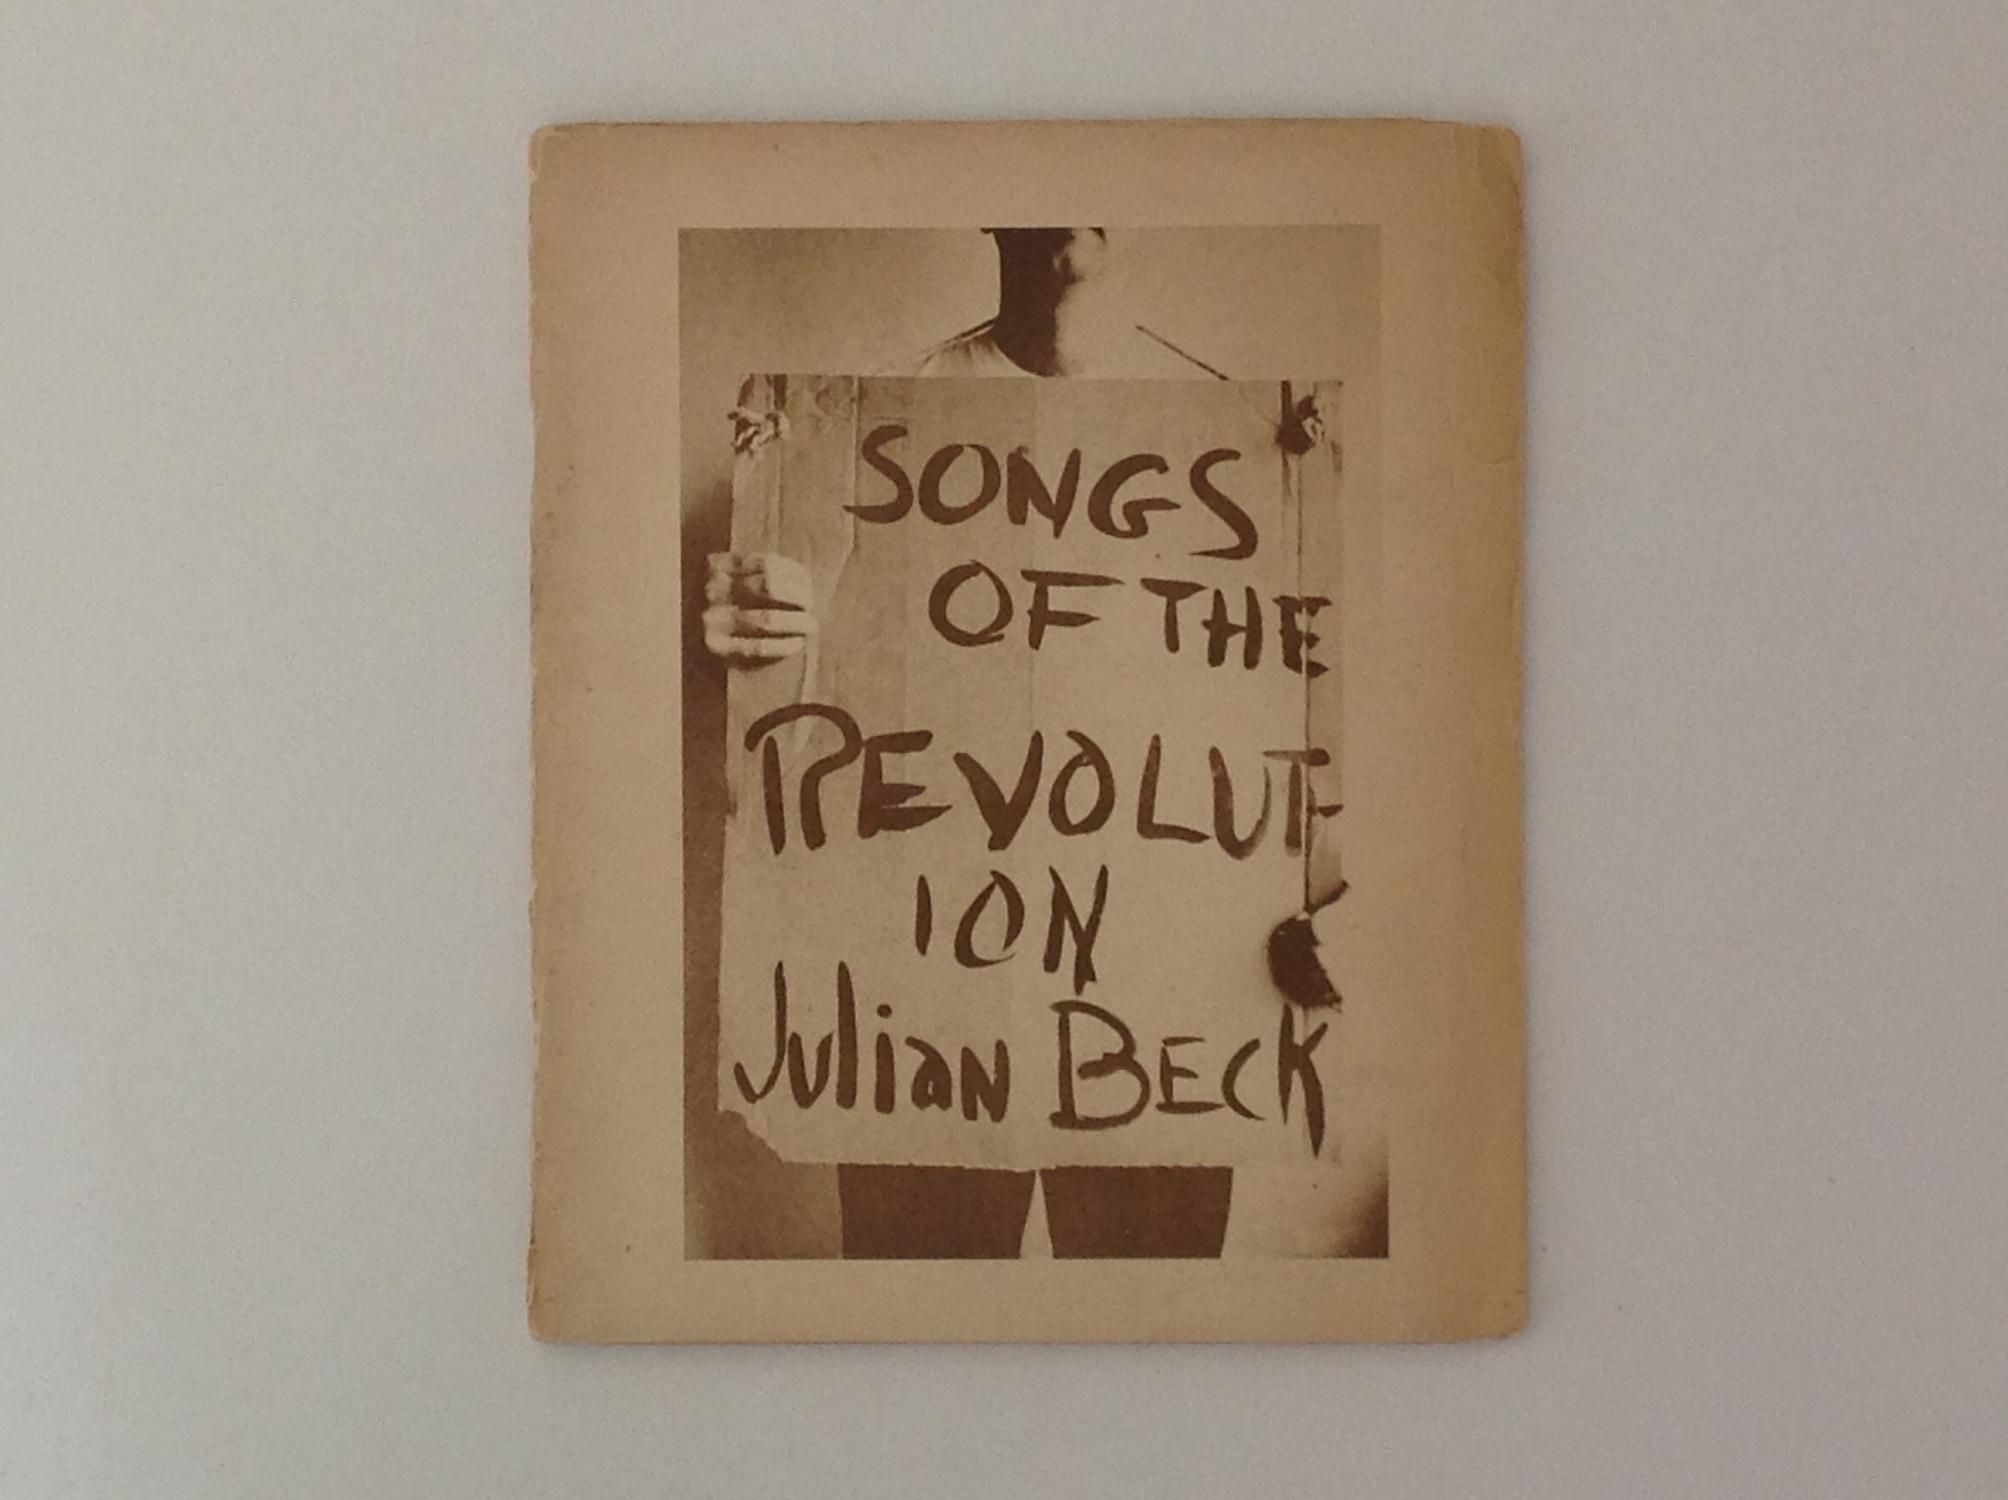 SONGS
OF THE
REVOLUT
ION
Julian BECK